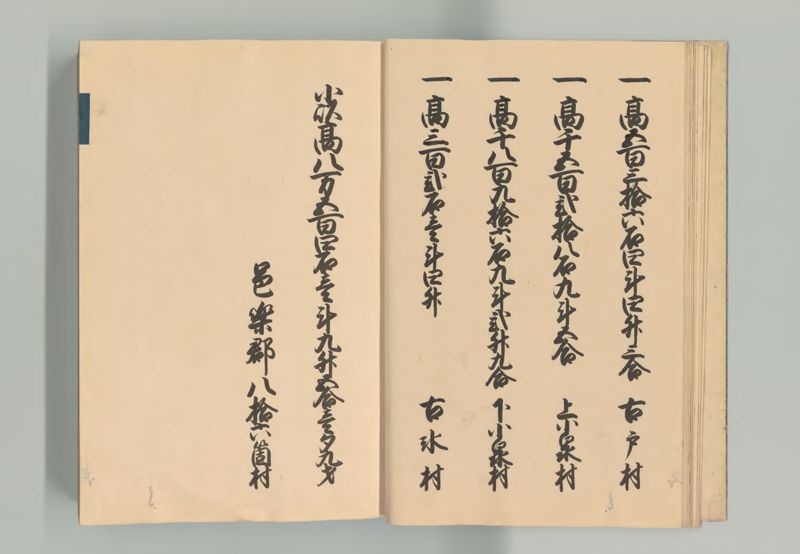 一高五百三拾六石四斗四升三合 古戸村
一高千五百弐拾八石九斗五合 上小泉村
一高千八百九拾六石九斗弐升九合 下小泉村
一高三百弐石壱斗四升 古氷村
小以高八万五百四石壱斗九升五合壱夕九才
邑楽郡八拾六箇村